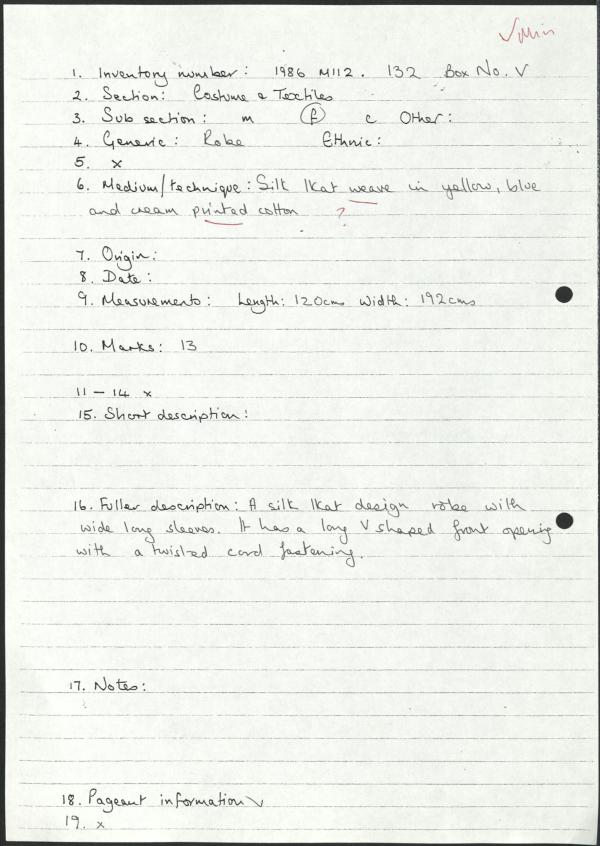 √Min
1. Inventory number: 1986 M112. 132 Box No. V
2. Section: Costume & Textiles
3. Sub section: m f c Other:
4. Generic: Robe Ethnic:
5. x
6. Medium/technique: Silk Ikat weave in yellow, blue
and cream printed cotton ?
7. Origin:
8. Date:
9. Measurements: Length: 120cms Width: 192cms
10. Marks: 13
11 - 14 x
15. Short description:
16. Fuller description: A silk Ikat design robe with
wide long sleeves. It has a long V shaped front opening
with a twisted cord fastening.
17. Notes:
18. Pageant information √
19. x